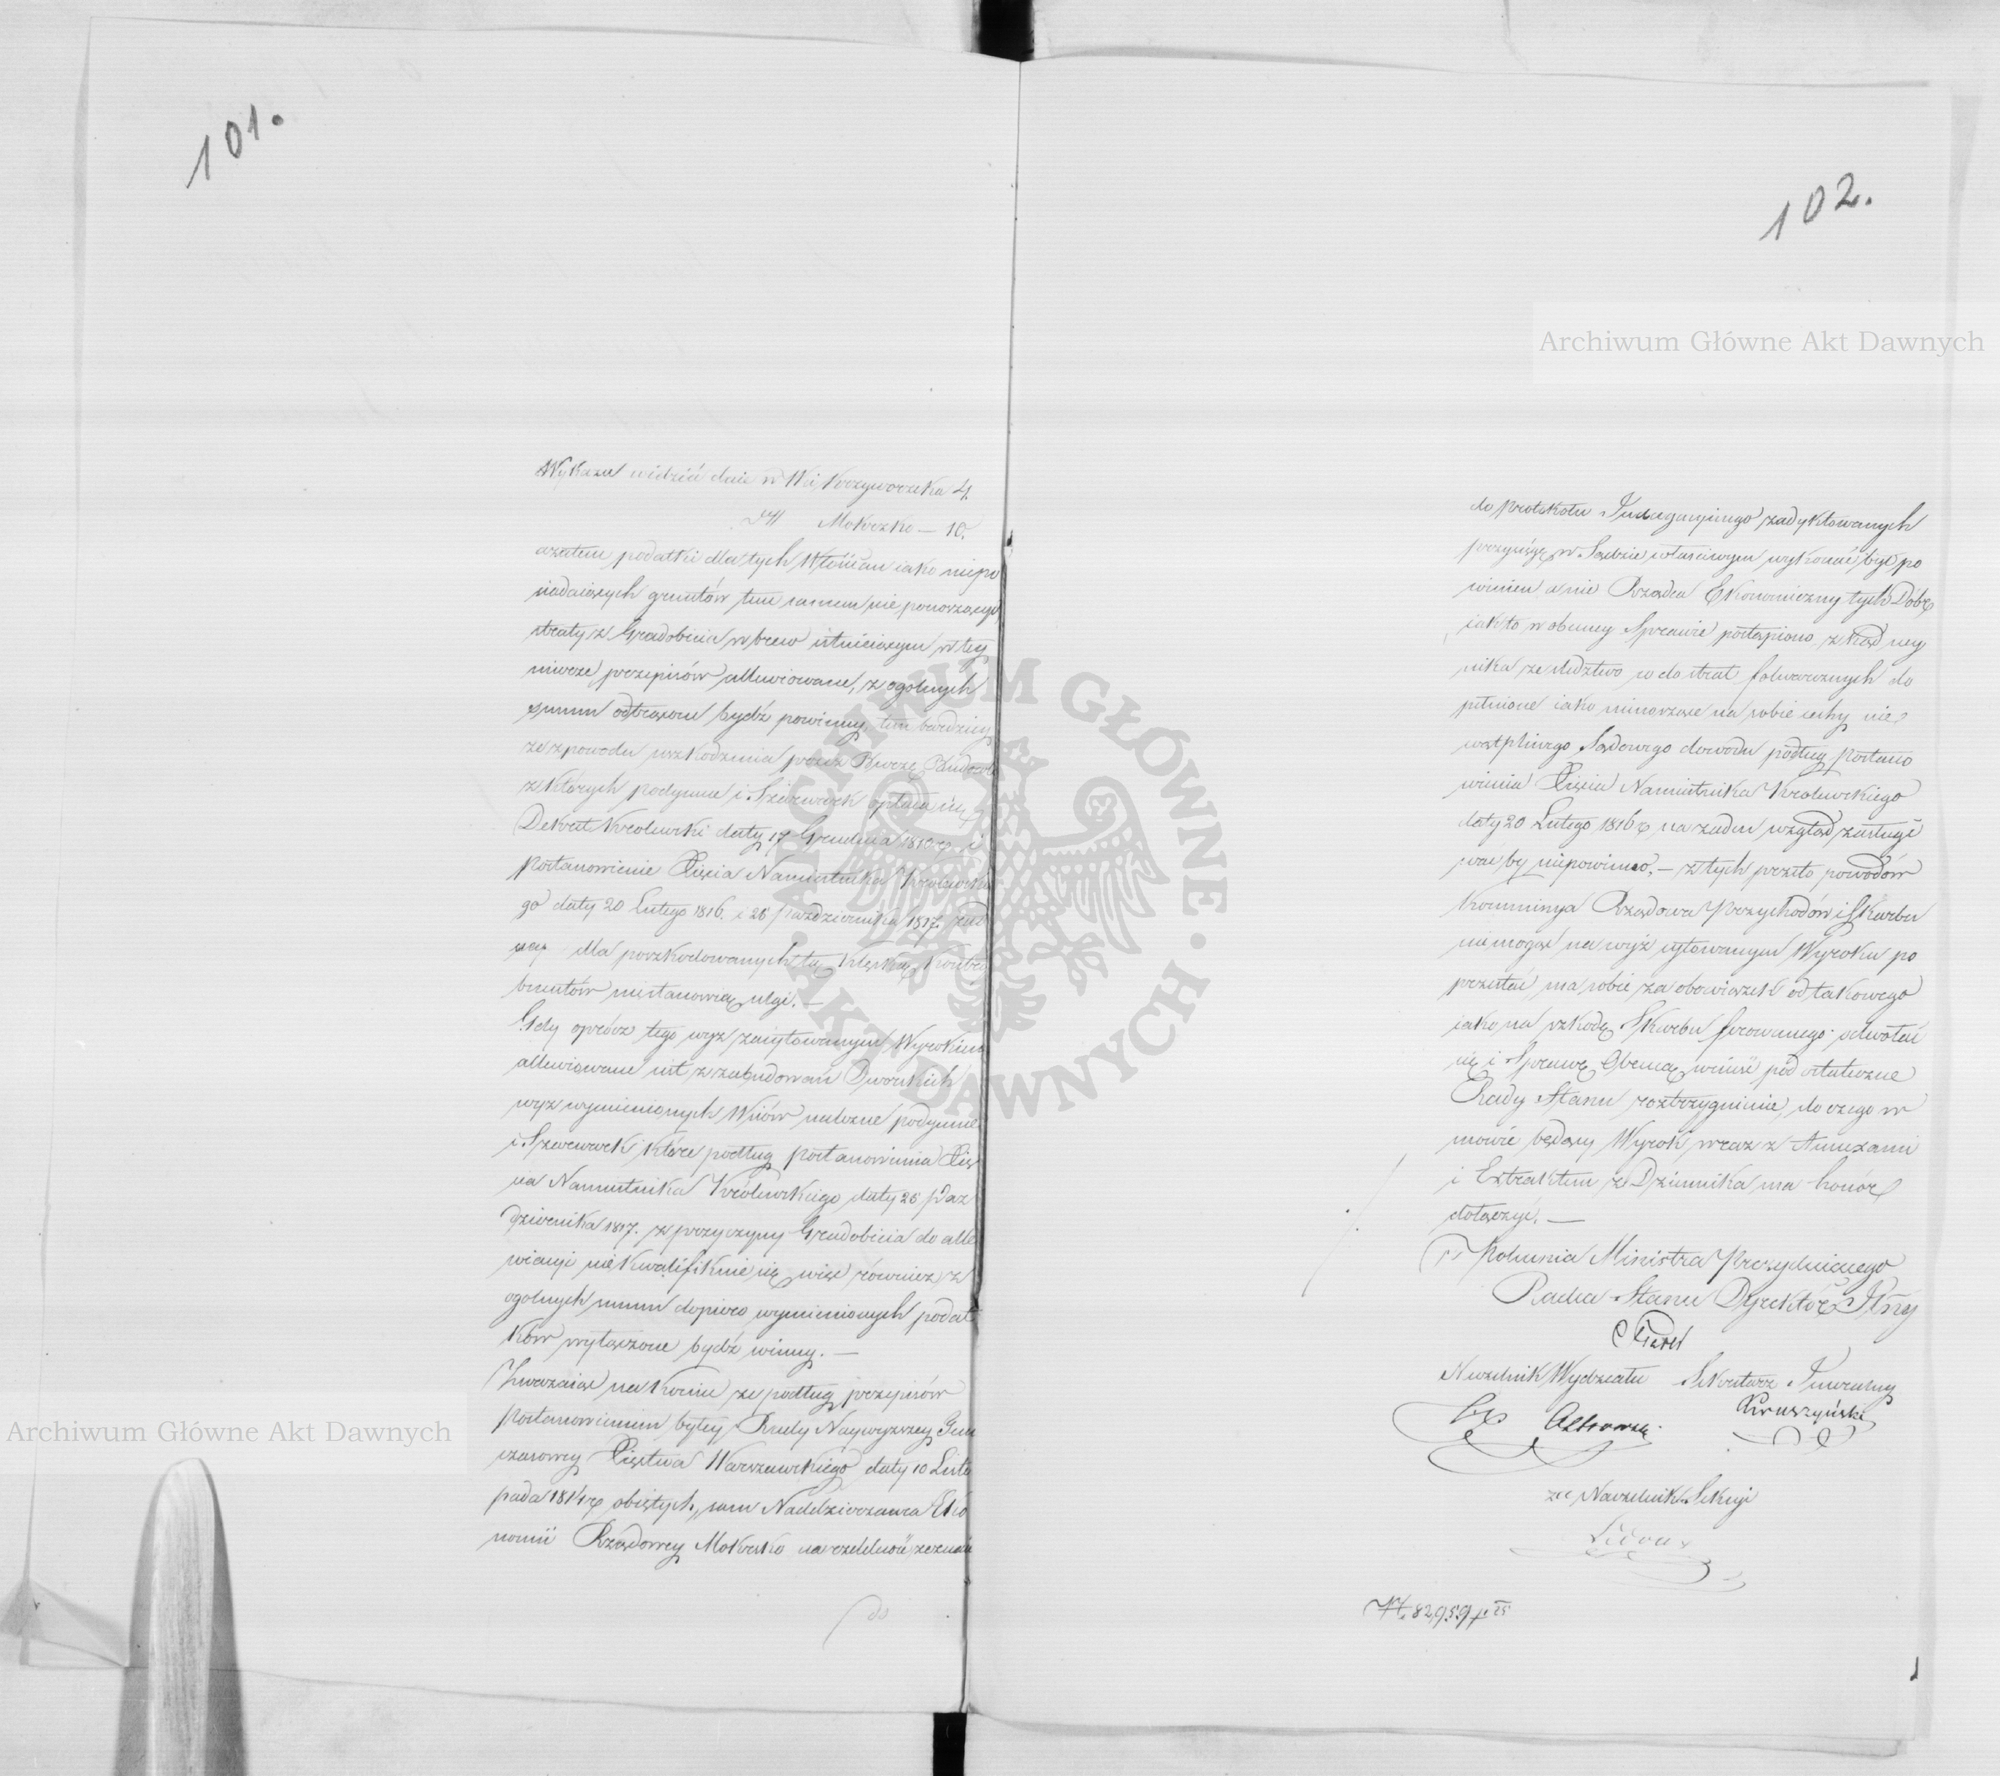 101.
Wykazu widzieć daie w Wsi Krzyworzeka 4.
Mokrzko — 10.
azatem podatki dla tych Włościan iako niepo
siadaiących gruntów tem samem nie ponoszących
straty z Gradobicia wbrew istnieiącym w tey
mierze przepisów allewiowane, z ogolnych
summ odtrącone bydź powinny, tem bardziey
ze z powodu uszkodzenia przez Burzę Budowli
z których podymne i Szarwark opłaca się
Dekret Krolewski daty 17 Grudnia 1810 r. i
Postanowienie Xięcia Namiestnika Krolewskie
go daty 20 Lutego 1816. i 26 Października 1817.
dla poszkodowanych tą klęską Kontry
buentów niestanowią ulgi. —
Gdy oprócz tego wyz zacytowanym Wyrokiem
allewiowane iest z zabudowań Dworskich
wyz wymienionych Wsiów nalezne podymne
i Szarwark które podług postanowienia Xię
cia Namiestnika Krolewskiego daty 26 Paz
dziernika 1817. z przyczyny Gradobicia do alle
wiacyi nie kwalifikuie się więc również z
ogolnych summ dopiero wymienionych podat
ków wyłączone bydź winny. —
Zwazaiąc na koniec ze podług przepisów
Postanowieniem byłey Rady Naywyzszey Tym
czasowey Xięstwa Warszawskiego daty 10 Listo
pada 1814 r. obiętych, sam Naddzierzawca Eko
nomii Rządowey Mokrsko na rzetelność zeznań
do
102.
do protokołu Indagacyinego zadyktowanych
przysięgę w Sądzie właściwym wykonać był po
winien a nie Rządca Ekonomiczny tych Dóbr
iak to w obecney Sprawie postąpiono, z kąd wy
nika ze sledztwo w do strat folwarcznych do
pełnione iako niemaiące na sobie cechy nie
wątpliwego Sądowego dowodu podług Postano
wienia Xięcia Namiestnika Krolewskiego
daty 20 Lutego 1816 r. na zaden wzgląd zasługi
wać by niepowinno. — z tych przeto powodów
Kommissya Rządowa Przychodów i Skarbu
nie mogąc na wyż cytowanym Wyroku po
przestać ma sobie za obowiązek od takowego
iako na szkodę Skarbu ferowanego odwołać
się i Sprawę Obecną wnieść pod ostateczne
Rady Stanu rozstrzygnienie, do czego w
mowie będący Wyrok wraz z Annexami
i Extraktem z Dziennika ma honor
dołączyć. —
Z Polecenia Ministra Prezyduiącego
Radca Stanu Dyrektor Jlny
Naczelnik Wydziału Sekretarz Jeneralny
Kruszyński
za Naczelnik Sekcyi
Nr. 82,959
Archiwum Główne Akt Dawnych
Archiwum Główne Akt Dawnych
ARCHIWUM GŁÓWNE · AKT DAWNYCH ·